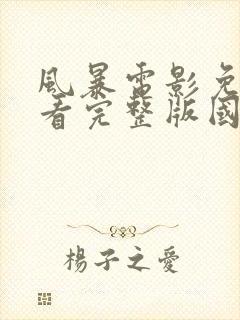 風暴電影免
看完整版國
楊子之愛